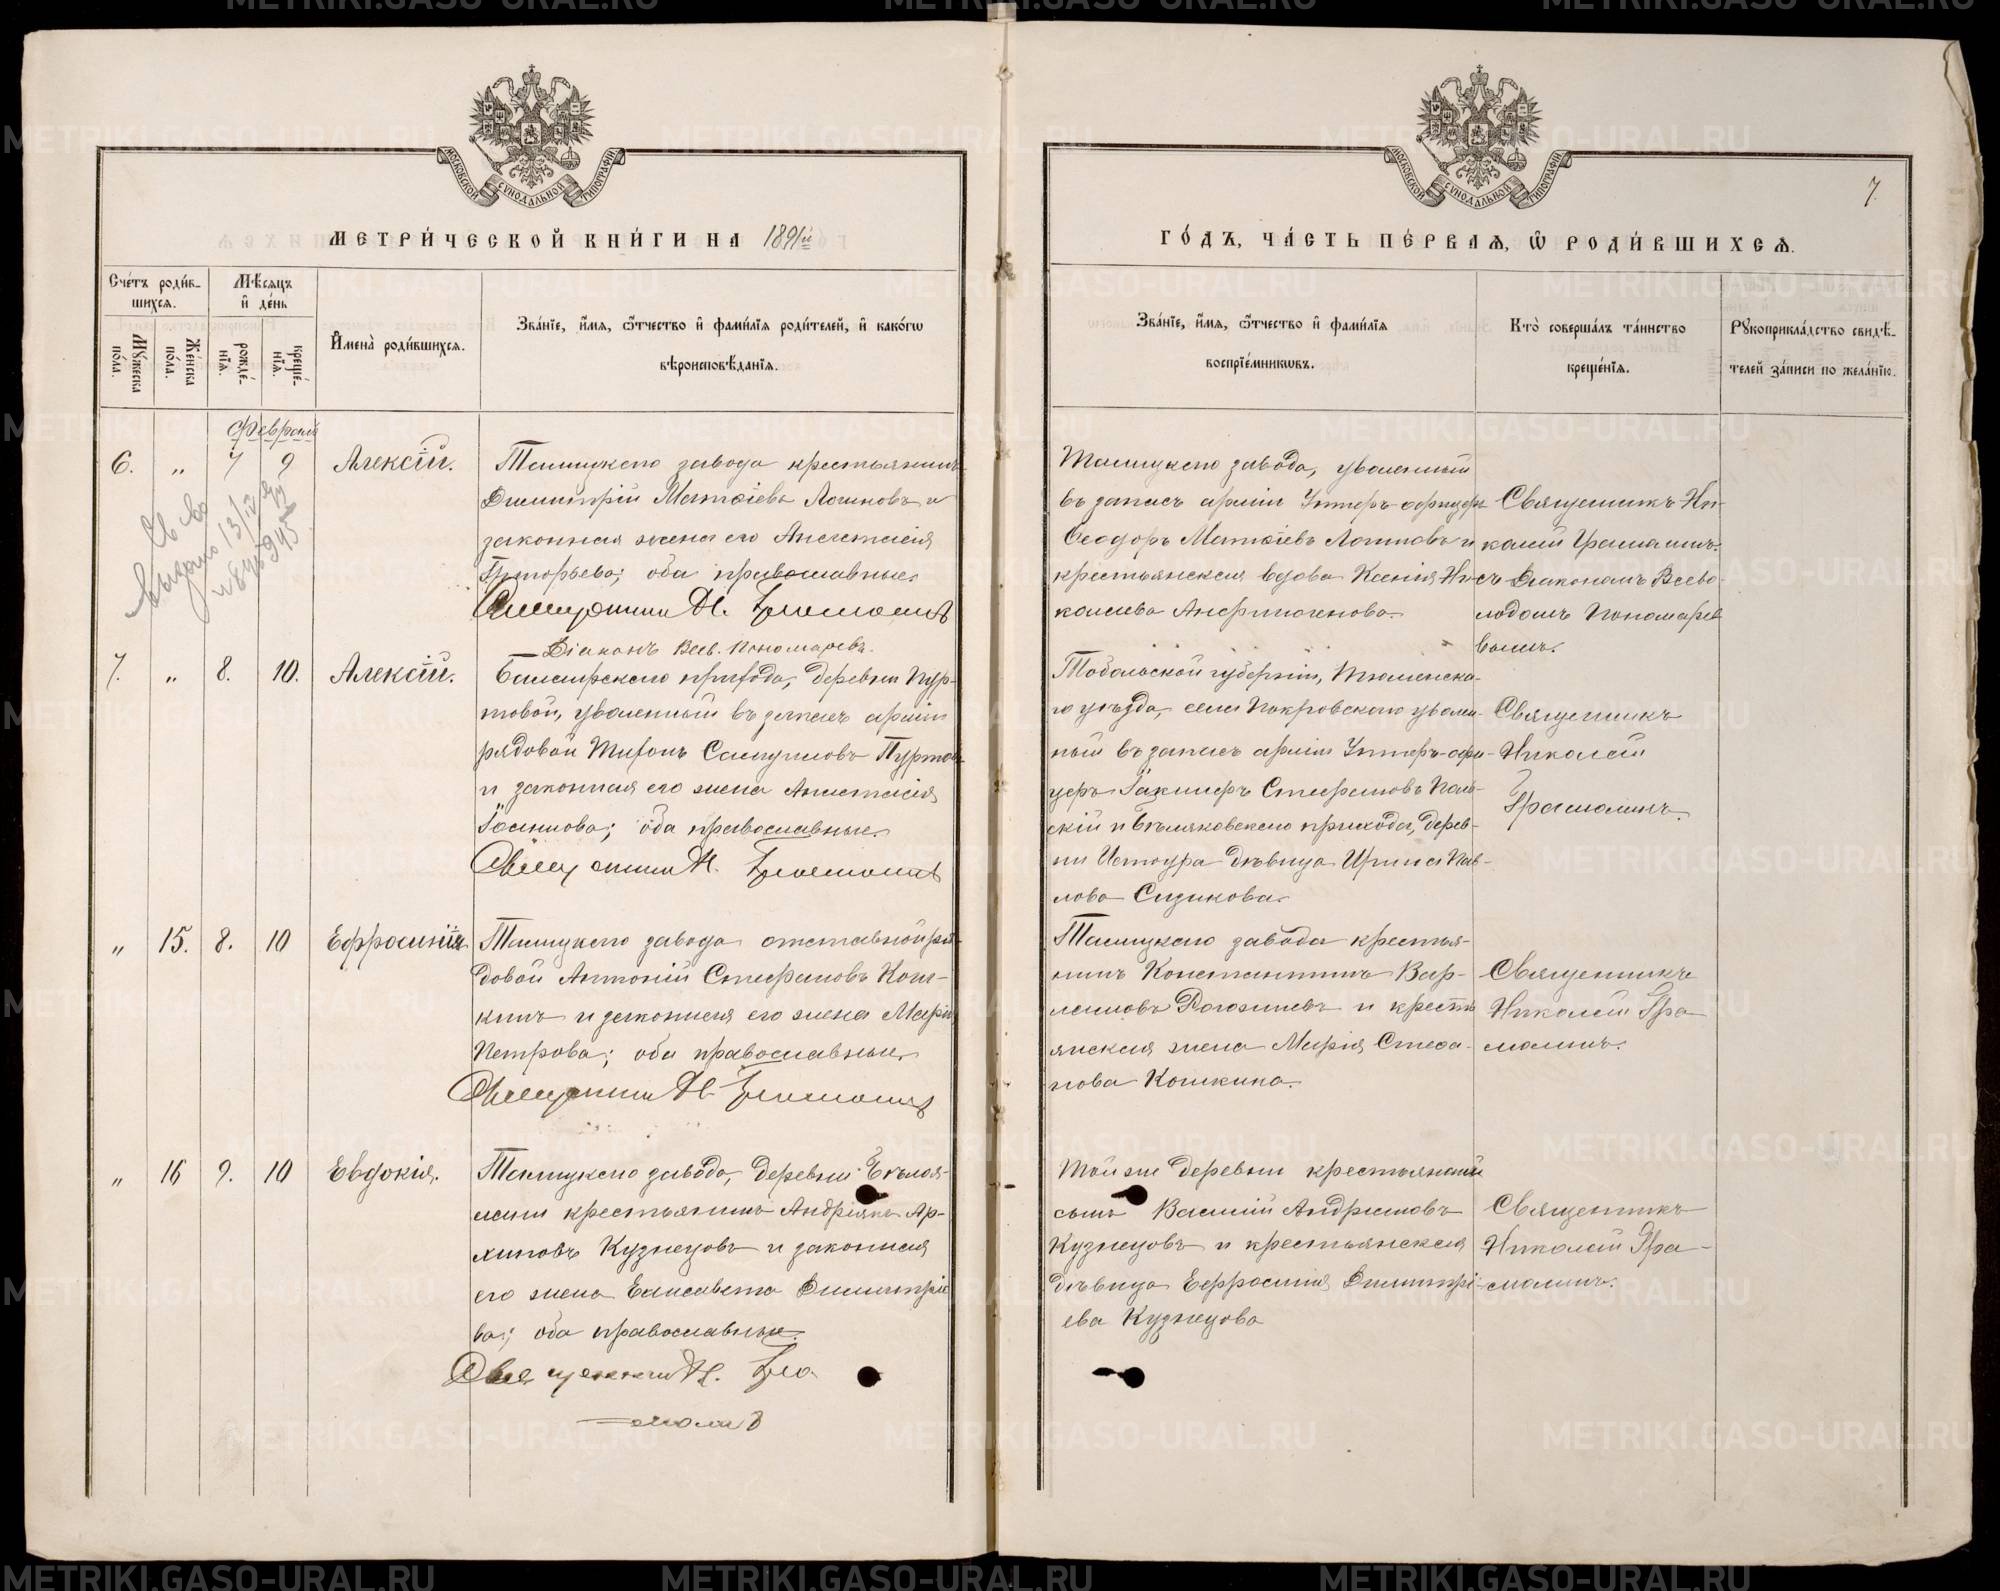 МОСКОВСКОЙ СУНОДАЛЬНОЙ ТИПОГРАФІИ
МОСКОВСКОЙ СУНОДАЛЬНОЙ ТИПОГРАФІИ
7.
МЕТРИ́ЧЕСКОЙ КНИ́ГИ НА 1891й
ГО́ДЪ, ЧА́СТЬ ПЕ́РВАѦ, Ѿ РОДИ́ВШИХСѦ.
Сче́тъ роди́в-
шихсѧ.
Мꙋ́жеска по́ла.
Же́нска по́ла.
Мѣ́сѧцъ и҆ де́нь
рожде́-
нїѧ.
креще́-
нїѧ.
И҆мена̀ роди́вшихсѧ.
Зва́нїе, и҆́мѧ, ѻ҆́тчество и҆ фами́лїѧ роди́телей, и҆ како́гѡ
вѣроисповѣ́данїѧ.
Зва́нїе, и҆́мѧ, ѻ҆́тчество и҆ фами́лїѧ
воспрїе́мникѡвъ.
Кто̀ соверша́лъ та́инство
креще́нїѧ.
Рꙋкоприкла́дство свидѣ́-
телей за́писи по жела́нїю.
Февраля
6. „ 7 9 Алексій.
Талицкаго завода крестьянинъ
Димитрій Матѳіевъ Логиновъ и
законная жена его Анастасія
Григорьева; оба православные.
Священникъ Н. Грамолинъ
Діаконъ Всев. Пономаревъ.
Талицкаго завода, уволенный
въ запасъ арміи Унтеръ-офицеръ
Ѳеодоръ Матѳіевъ Логиновъ и
крестьянская вдова Ксенія Ни-
колаева Анфиногенова.
Священникъ Ни-
колай Грамолинъ
съ Діакономъ Всево-
лодомъ Пономаре-
вымъ.
Св во
выдано 13/IV
7. „ 8. 10. Алексій.
Балаирскаго прихода, деревни Пур-
товой, уволенный въ запасъ арміи
рядовой Тихонъ Самуиловъ Пуртовъ
и законная его жена Анастасія
Іоаннова; оба православные.
Священникъ Н. Грамолинъ
Тобольской губерніи, Тюменска-
го уѣзда, села Покровскаго уволен-
ный въ запасъ арміи Унтеръ-офи-
церъ Стефановъ Поль-
скій и Бѣляковскаго прихода, дерев-
ни Истоура дѣвица Ирина Пав-
лова Сизикова.
Священникъ
Николай
Грамолинъ.
„ 15. 8. 10 Ефросинія
Талицкаго завода отставной ря-
довой Антоній Стефановъ Кош-
кинъ и законная его жена Марія
Петрова; оба православные.
Священникъ Н. Грамолинъ
Талицкаго завода крестья-
нинъ Константинъ Вар-
лаамовъ Рогозинъ и кресть
янская жена Марія Стефа-
нова Кошкина.
Священникъ
Николай Гра
молинъ.
„ 16 9. 10 Евдокія.
Талицкаго завода, деревни
крестьянинъ Андріанъ Ар-
хиповъ Кузнецовъ и законная
его жена Елисавета Димитріе
ва; оба православные.
Священникъ Н. Гра-
молинъ
Той же деревни крестьянскій
сынъ Василій Андріановъ
Кузнецовъ и крестьянская
дѣвица Евфросинія Димитрі-
ева Кузнецова
Священникъ
Николай Гра-
молинъ.
METRIKI.GASO-URAL.RU